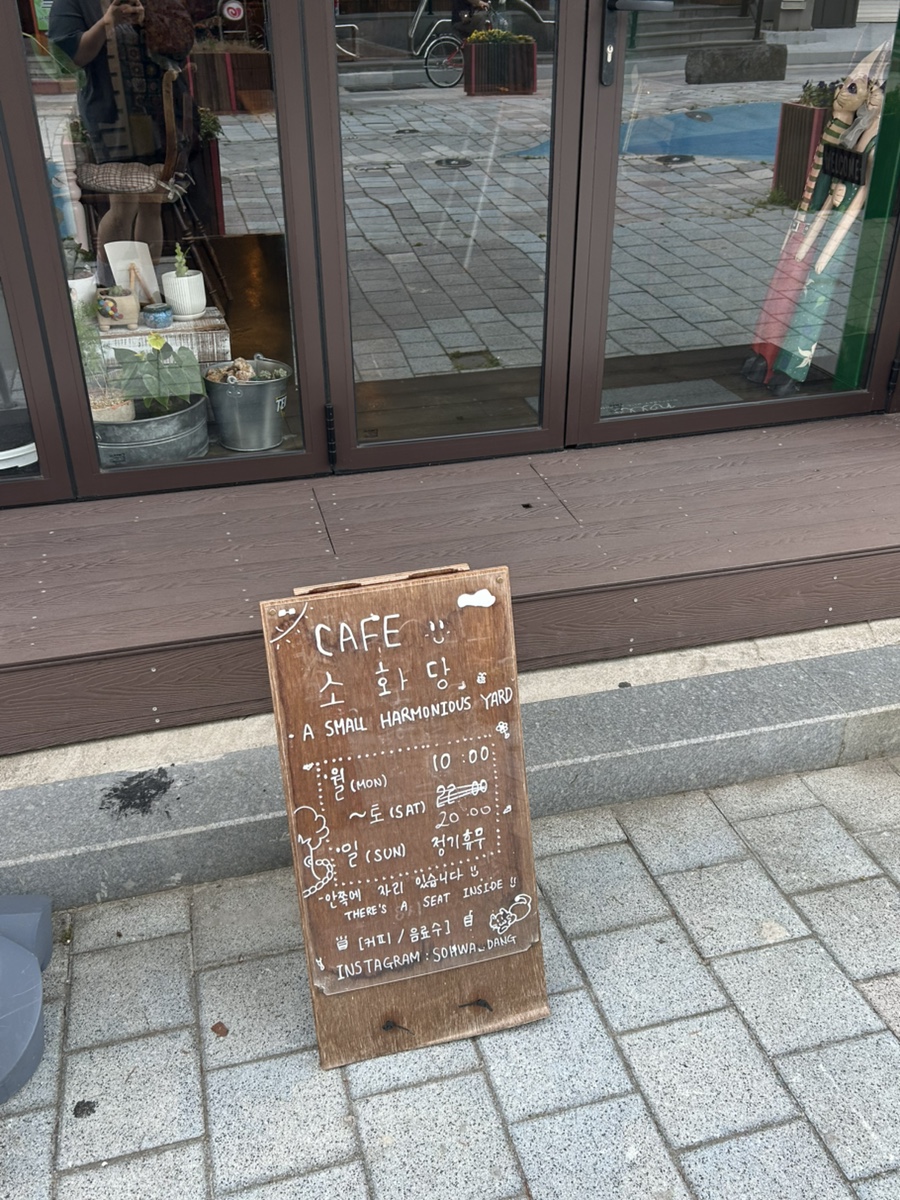 WELCOME
CAFE
소화당
A SMALL HARMONIOUS YARD
월(MON) 10:00
22:00
~토(SAT) 20:00
일(SUN) 정기휴무
안쪽에 자리 있습니다
THERE'S A SEAT INSIDE
[커피/음료수]
INSTAGRAM: SOHWA_DANG